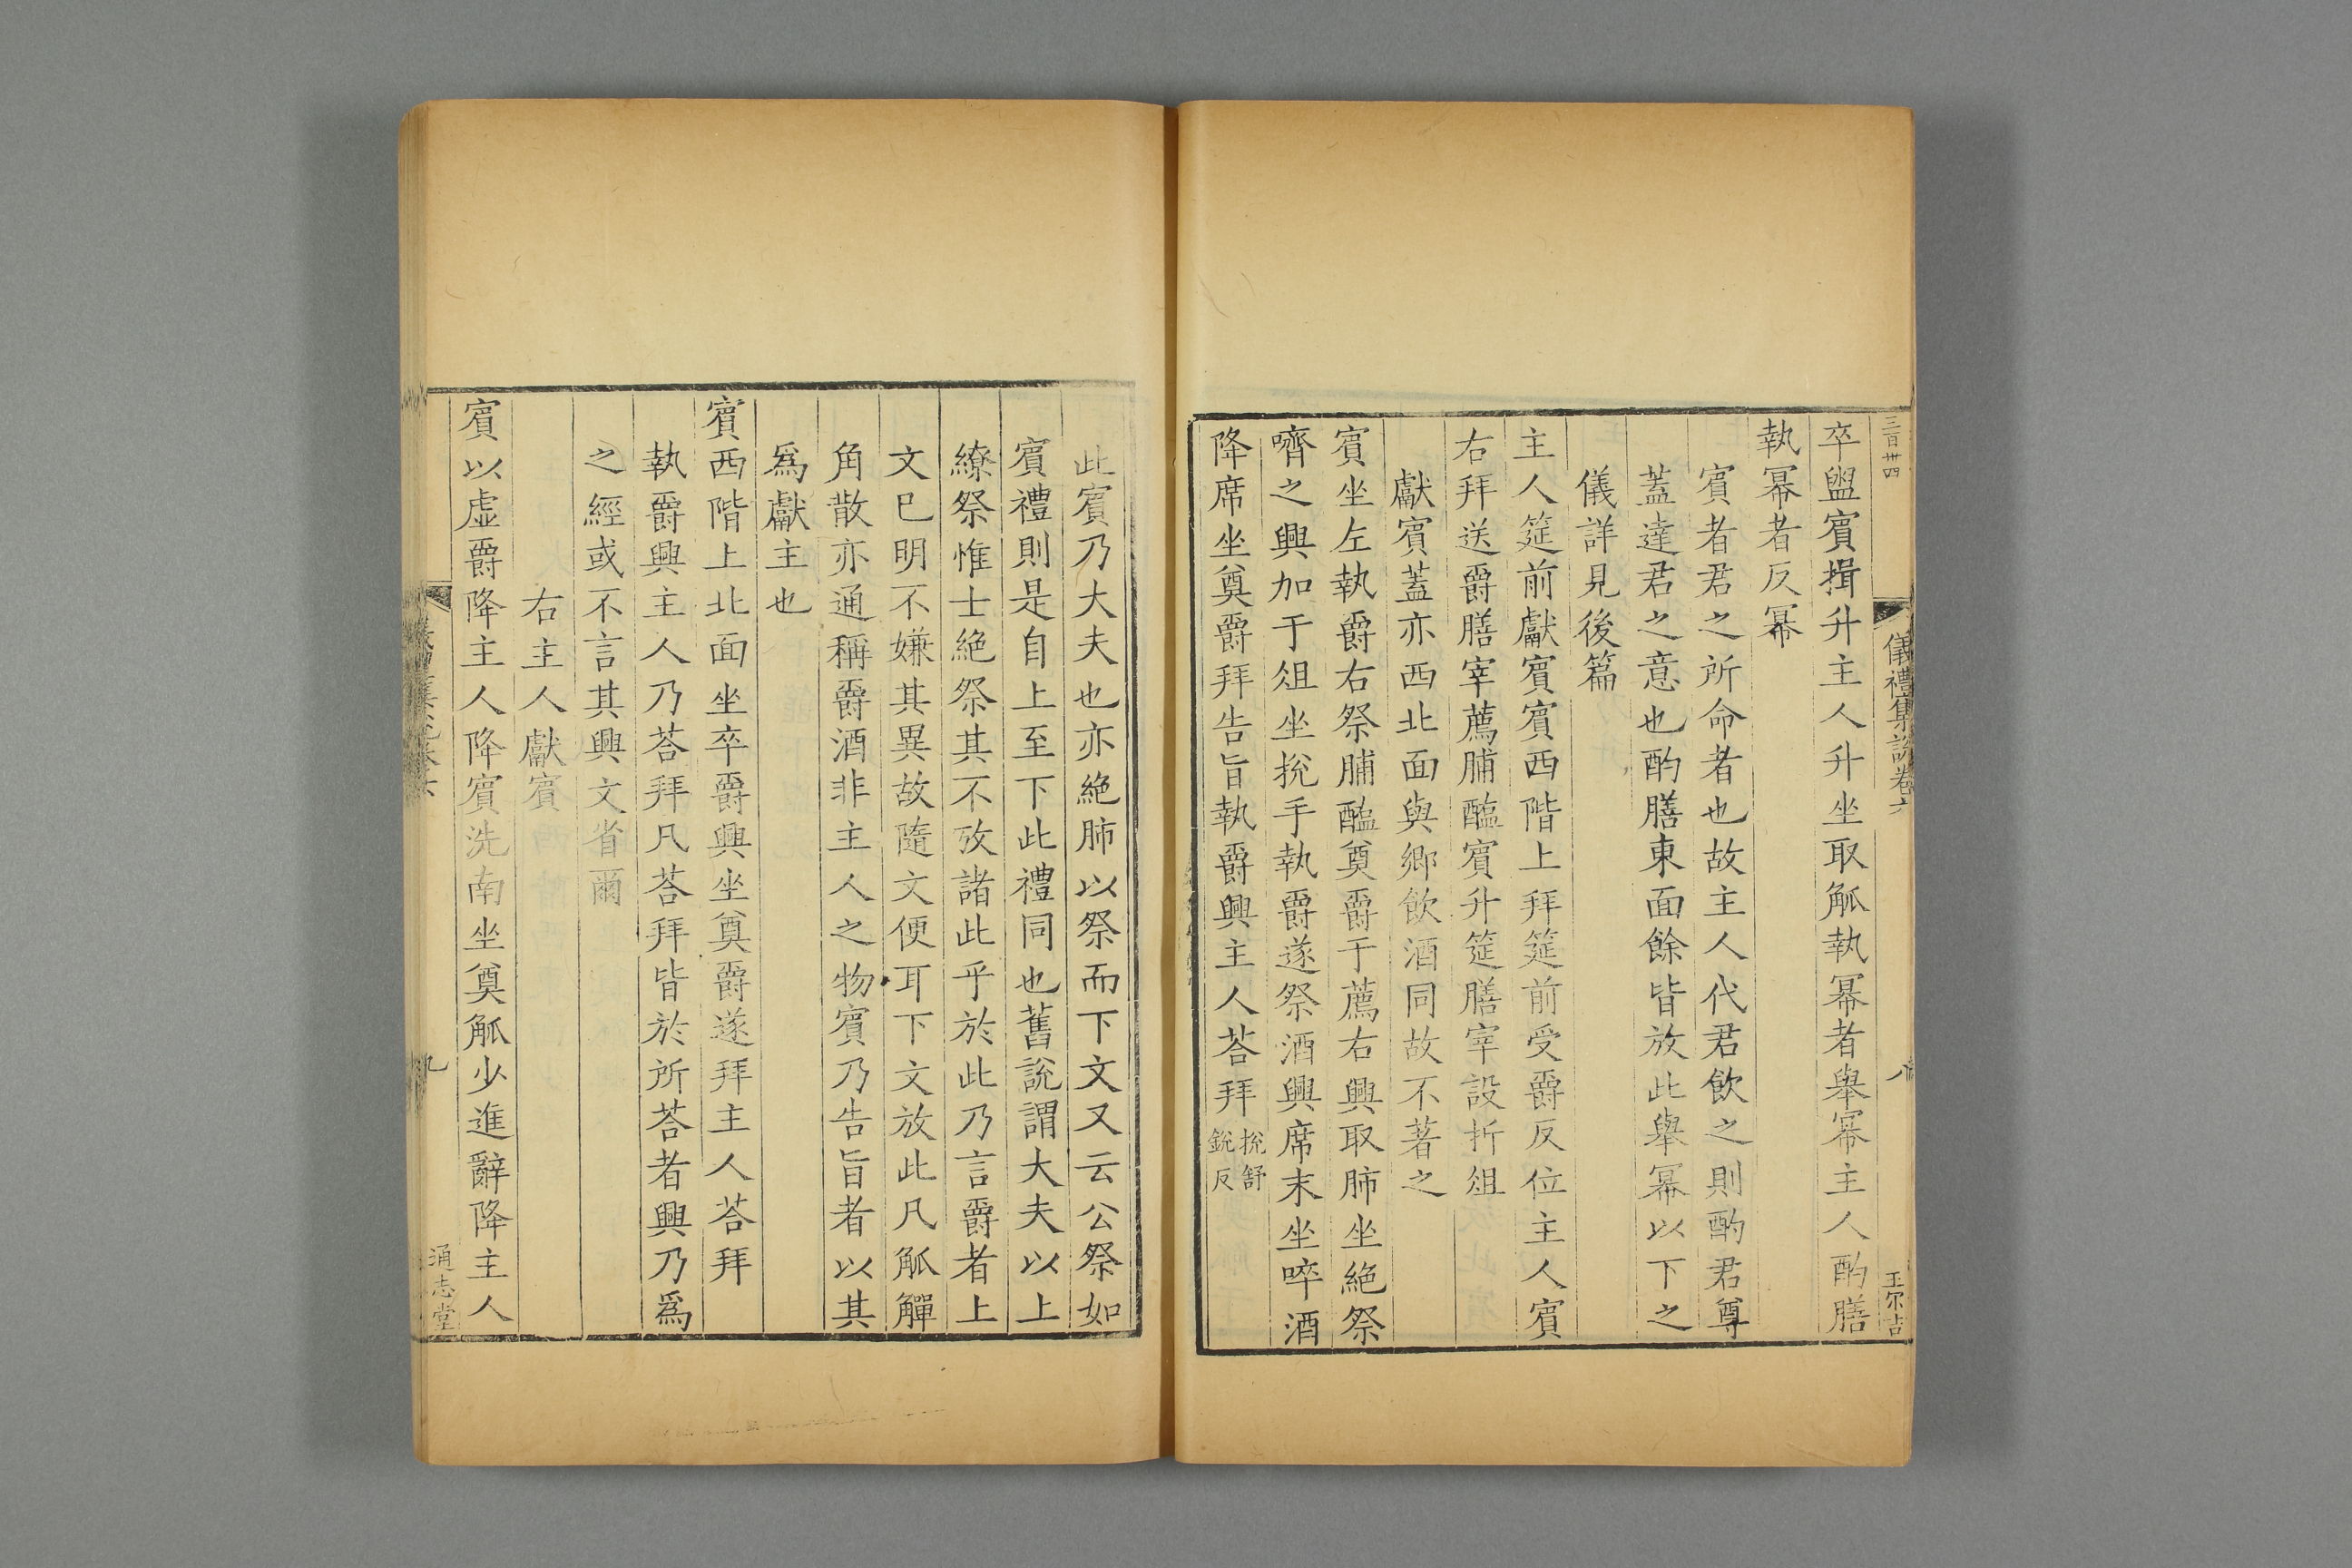 三百卄四
儀禮集說卷六
八
王尔吉
卒盥賓揖升主人升坐取觚執冪者舉冪主人酌膳
執冪者反冪
賓者君之所命者也故主人代君飲之則酌君尊
蓋達君之意也酌膳東面餘皆放此舉冪以下之
儀詳見後篇
主人筵前獻賓賓西階上拜筵前受爵反位主人賓
右拜送爵膳宰薦脯醢賓升筵膳宰設折俎
獻賓蓋亦西北面與鄉飲酒同故不著之
賓坐左執爵右祭脯醢奠爵于薦右興取肺坐絶祭
嚌之興加于俎坐挩手執爵遂祭酒興席末坐啐酒
降席坐奠爵拜告旨執爵興主人荅拜挩舒
銳反
此賓乃大夫也亦絶肺以祭而下文又云公祭如
賓禮則是自上至下此禮同也舊說謂大夫以上
繚祭惟士絶祭其不攷諸此乎於此乃言爵者上
文已明不嫌其異故隨文便耳下文放此凡觚觶
角散亦通稱爵酒非主人之物賓乃告旨者以其
爲獻主也
賓西階上北面坐卒爵興坐奠爵遂拜主人荅拜
執爵興主人乃荅拜凡荅拜皆於所荅者興乃爲
之經或不言其興文省爾
右主人獻賓
賓以虛爵降主人降賓洗南坐奠觚少進辭降主人
九
通志堂